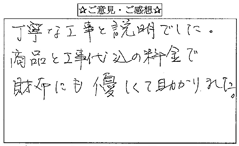 ☆ご意見・ご感想☆
丁寧な工事と説明でした。
商品と工事代込の料金で
財布にも優しくて助かりました。